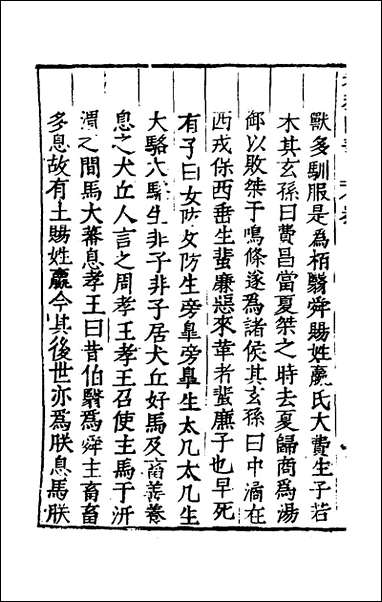 獸多馴服是爲栢翳舜賜姓嬴氏大費生子若
木其玄孫曰費昌當夏桀之時去夏歸商爲湯
御以敗桀于鳴條遂爲諸侯其玄孫曰中潏在
西戎保西垂生蜚廉惡來革者蜚廉子也早死
有子曰女防女防生旁臯旁臯生太几太几生
大駱大駱生非子非子居犬丘好馬及畜善養
息之犬丘人言之周孝王孝王召使主馬于汧
渭之間馬大蕃息孝王曰昔伯翳爲舜主畜畜
多息故有土賜姓嬴今其後世亦爲朕息馬朕